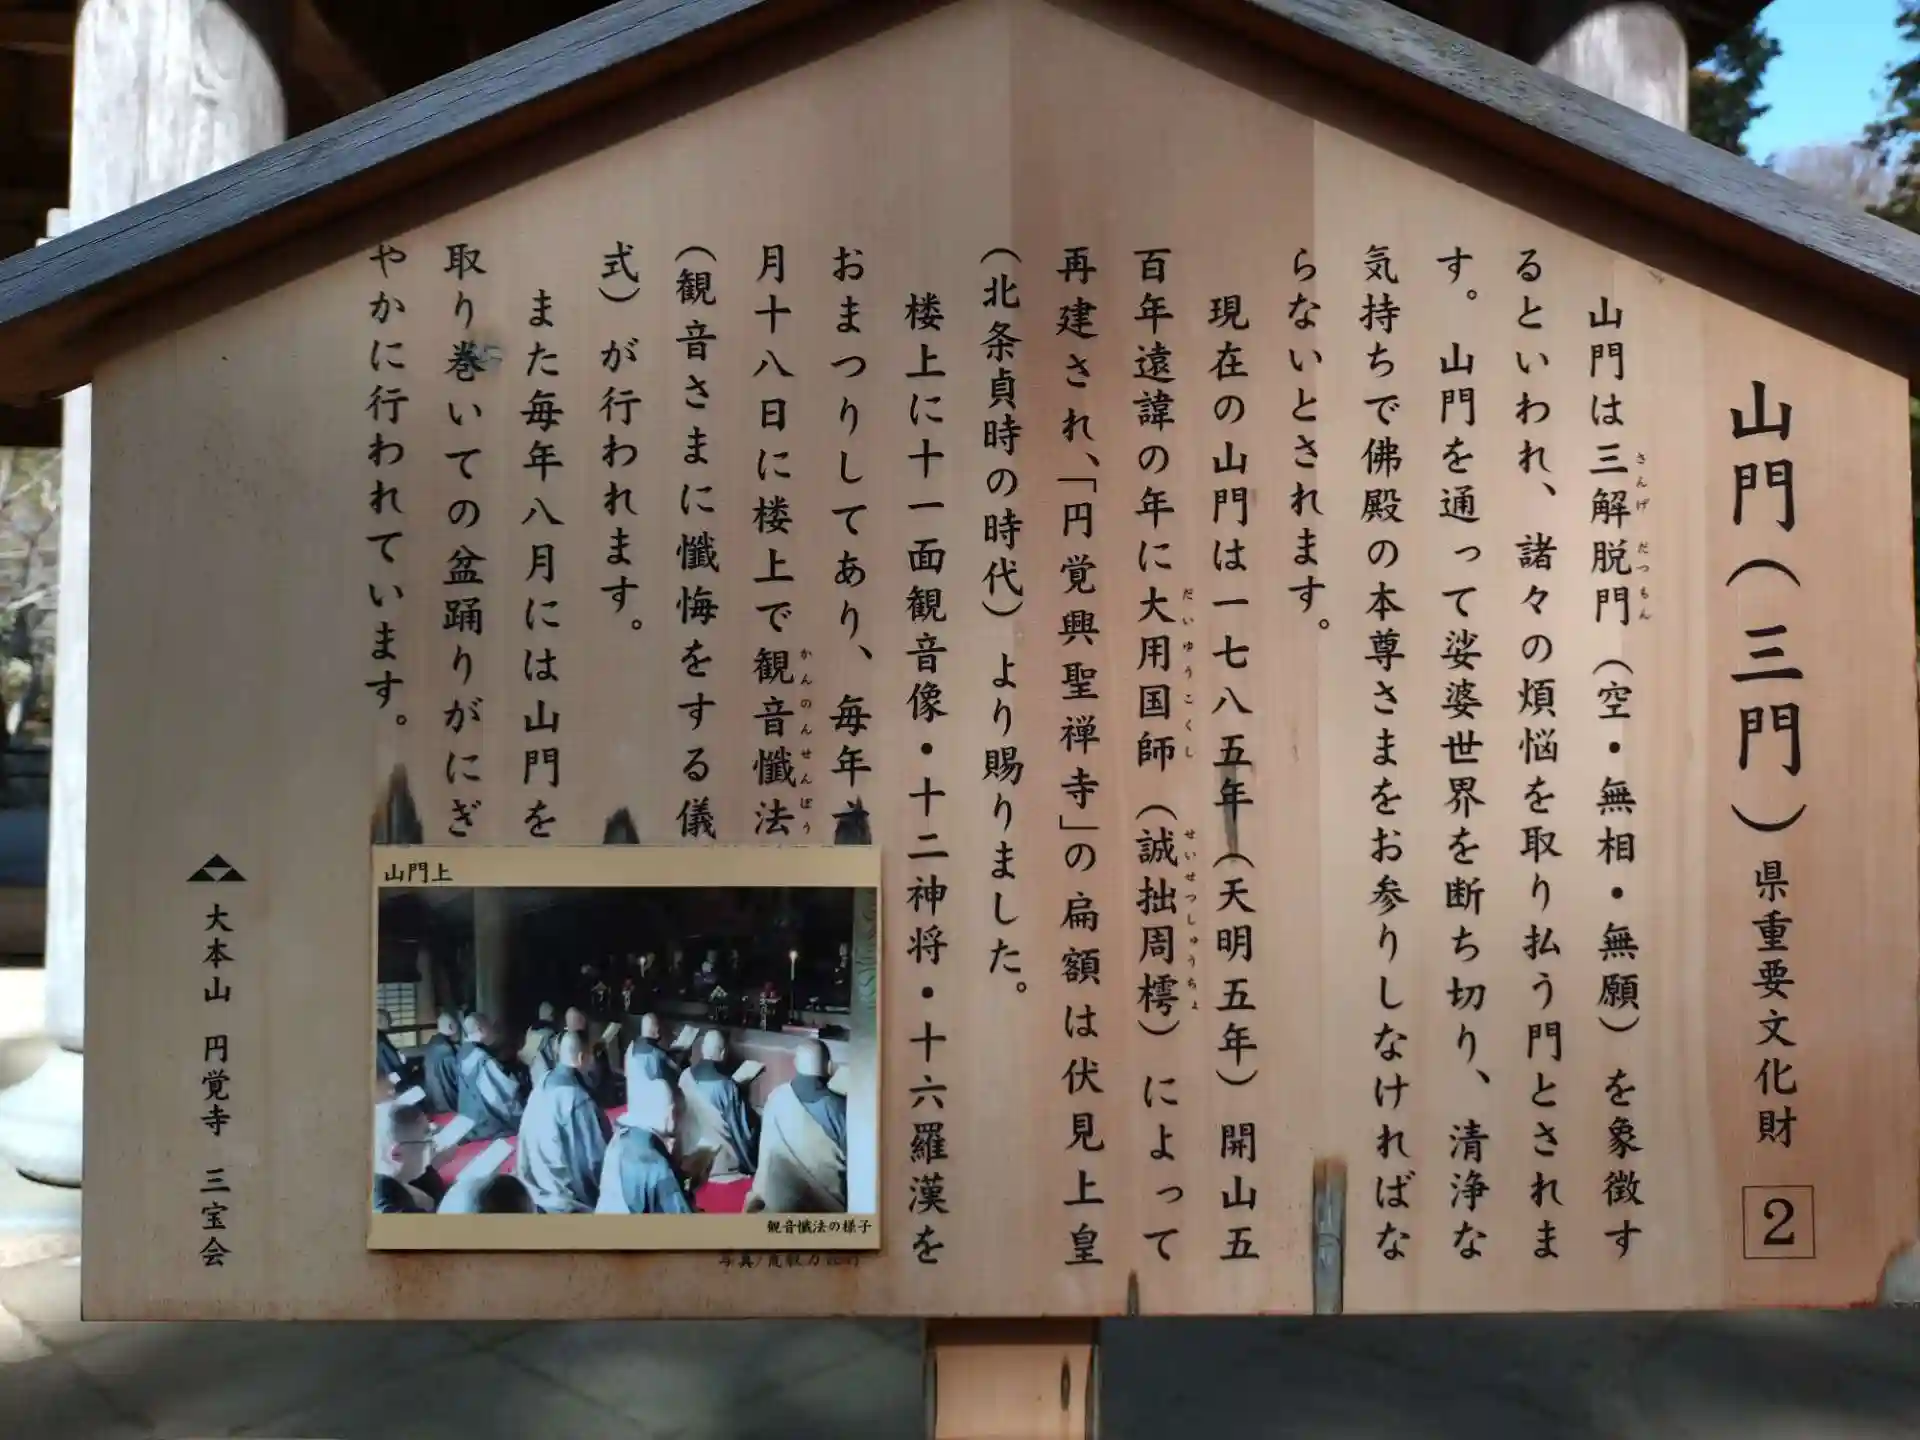 山門(三門)県重要文化財 2
山門は三解脱門(空・無相・無願)を象徴す
さんげだつもん
るといわれ、諸々の煩悩を取り払う門とされま
す。山門を通って娑婆世界を断ち切り、清浄な
気持ちで佛殿の本尊さまをお参りしなければな
らないとされます。
現在の山門は一七八五年(天明五年)開山五
百年遠諱の年に大用国師(誠拙周樗)によって
だいゆうこくし せいせつしゅうちょ
再建され、「円覚興聖禅寺」の扁額は伏見上皇
(北条貞時の時代)より賜りました。
楼上に十一面観音像・十二神将・十六羅漢を
おまつりしてあり、毎年
月十八日に楼上で観音懺法
かんのんせんぼう
(観音さまに懺悔をする儀
式)が行われます。
また毎年八月には山門を
取り巻いての盆踊りがにぎ
やかに行われています。
山門上
観音懺法の様子
大本山 円覚寺 三宝会